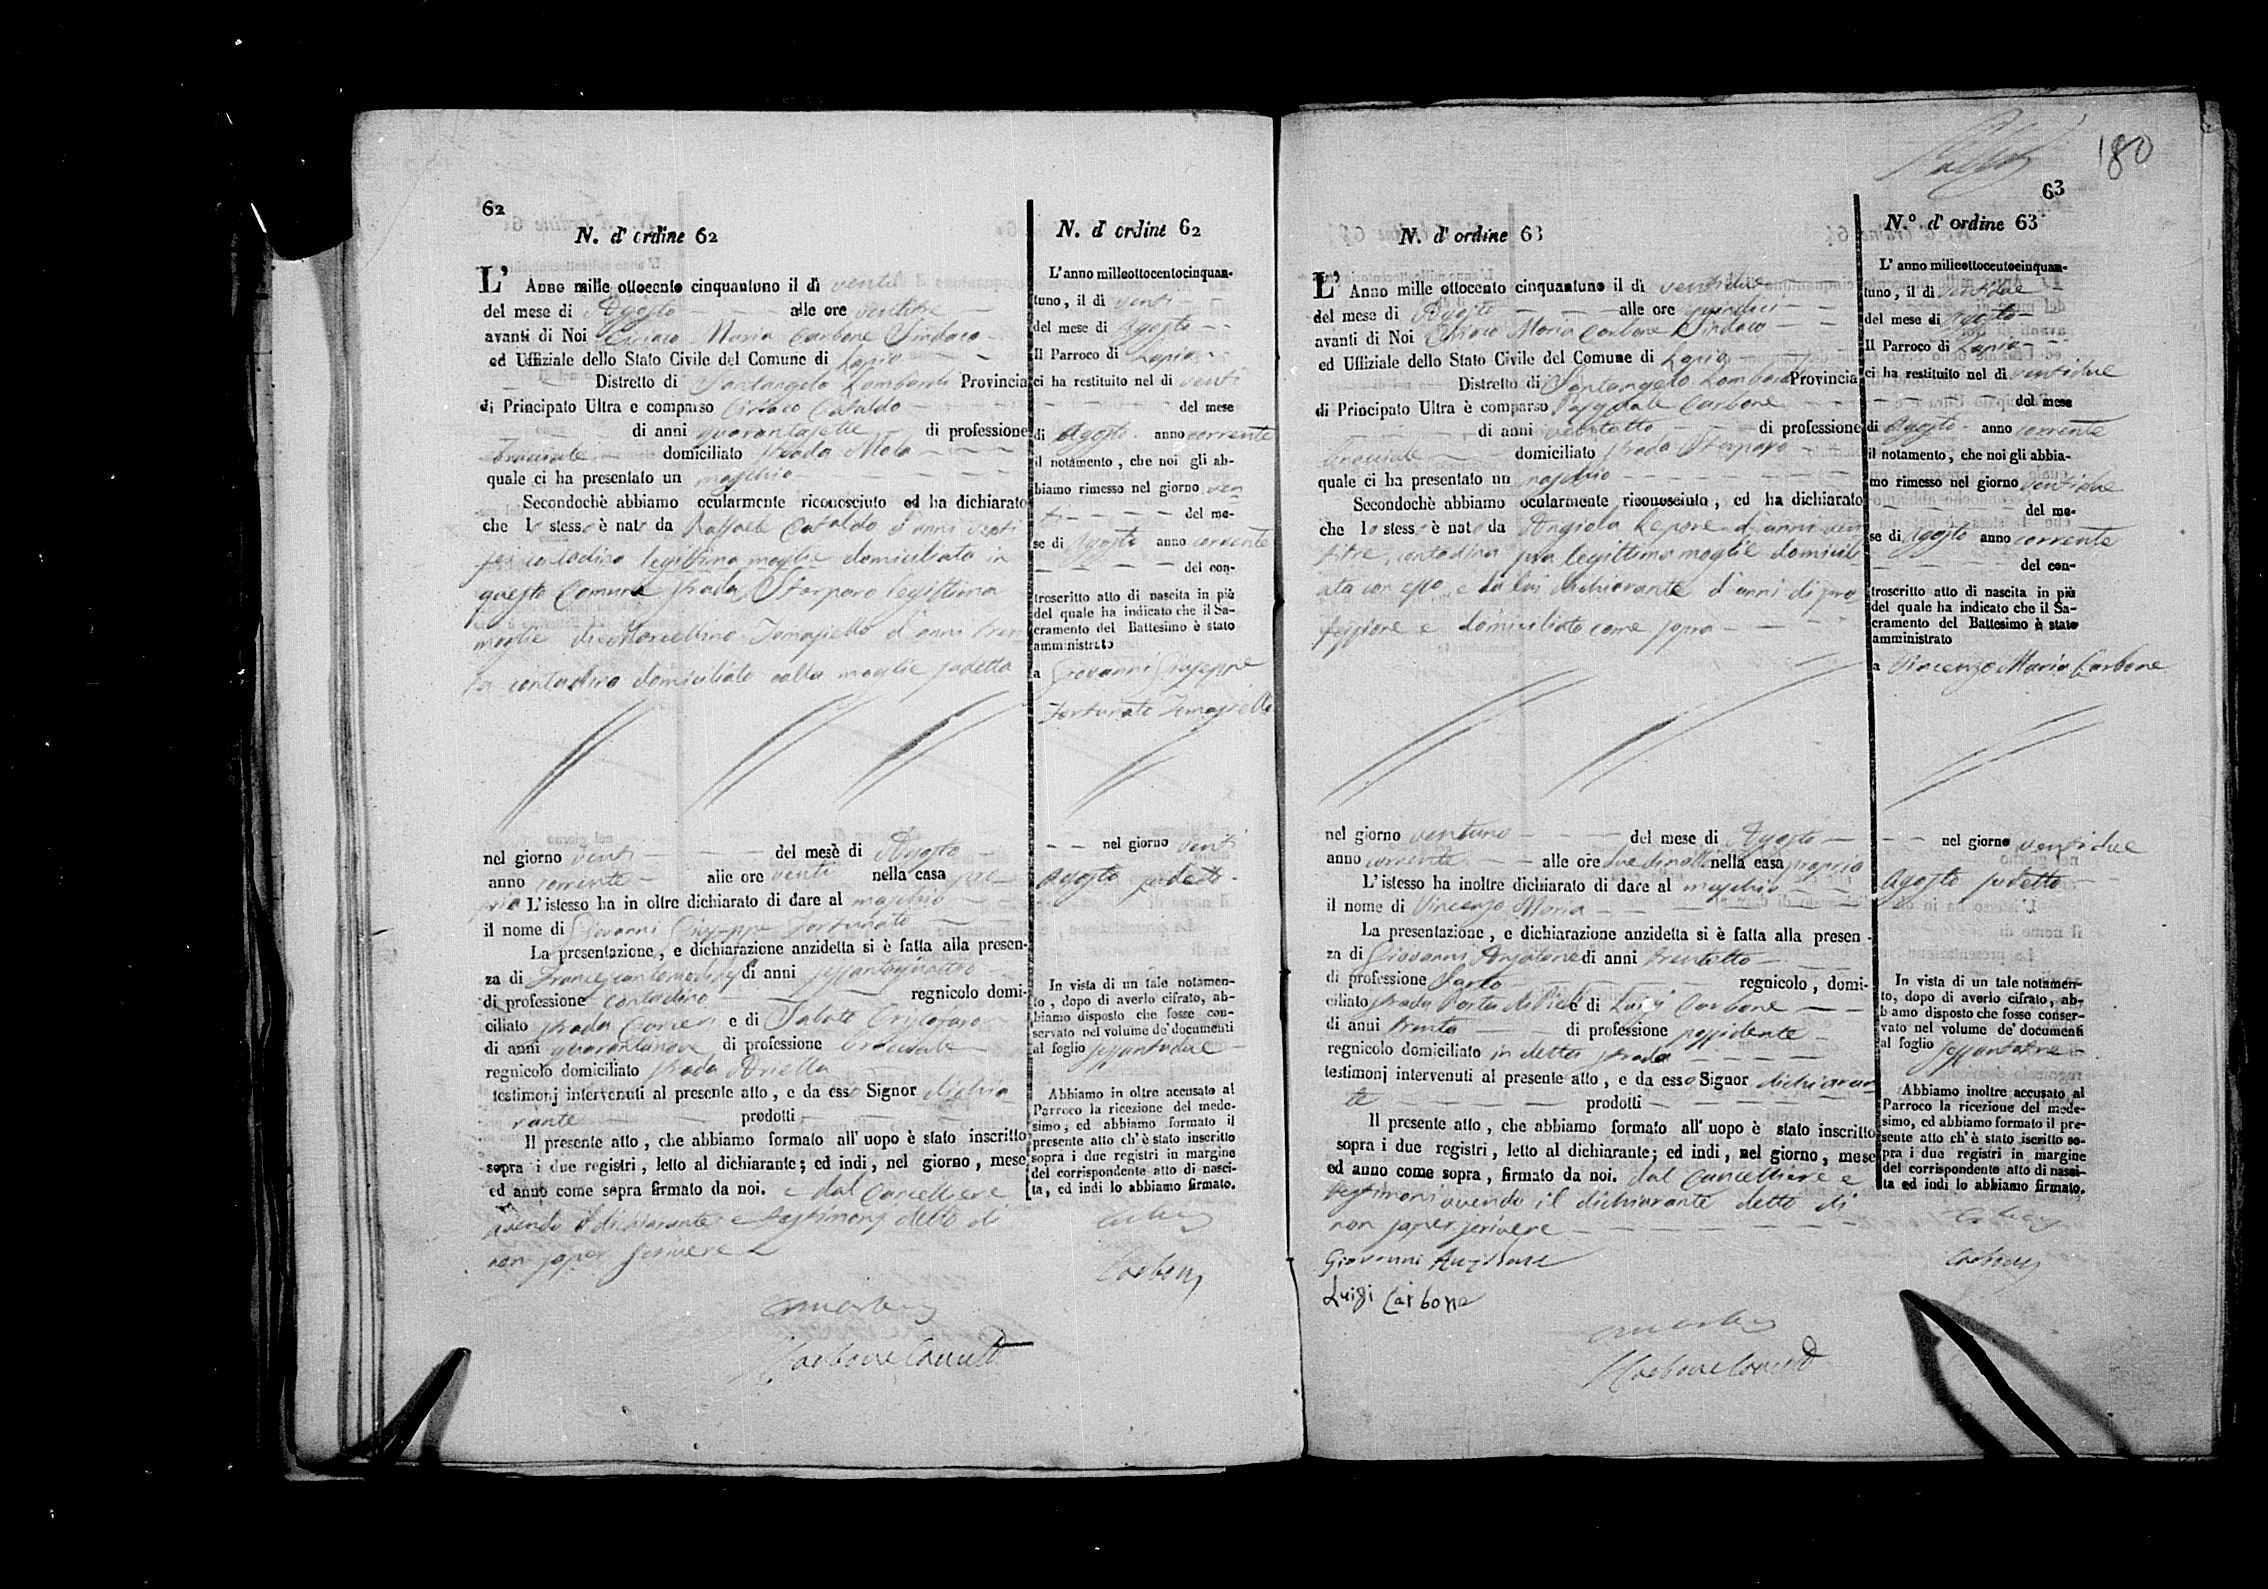 62
N. d' ordine 62
L' Anno mille ottocento cinquantuno il dì venti
del mese di Agosto alle ore ventitre
avanti di Noi Ciriaco Maria Carbone Sindaco
ed Uffiziale dello Stato Civile del Comune di Lapio
Distretto di Santangelo Lombardi Provincia
di Principato Ultra e comparso Ciriaco Cataldo
di anni quarantasette di professione
Bracciale domiciliato strada Mola
quale ci ha presentato un maschio
Secondochè abbiamo ocularmente riconosciuto ed ha dichiarato
che lo stesso è nato da Raffaela Cataldo d'anni venti
sei contadina legittima moglie domiciliata in
questo Comune strada Storparo legittima
moglie di Marcellino Tomasiello d'anni tren
ta contadino domiciliato colla moglie sudetta
nel giorno venti del mese di Agosto
anno corrente alle ore venti nella casa pro
pria L'istesso ha in oltre dichiarato di dare al maschio
il nome di Giovanni Giuseppe Fortunato
La presentazione, e dichiarazione anzidetta si è fatta alla presen-
za di di anni sessantaquattro
di professione contadino regnicolo domi-
ciliato strada e di Sabato
di anni quarantanove di professione Bracciale
regnicolo domiciliato strada
testimonj intervenuti al presente atto, e da esso Signor dichia
rante prodotti
Il presente atto, che abbiamo formato all'uopo è stato inscritto
sopra i due registri, letto al dichiarante; ed indi, nel giorno, mese
ed anno come sopra firmato da noi. e dal Cancelliere
avendo il dichiarante e testimonj detto di
non saper scrivere
Carbone
N. d' ordine 62
L'anno milleottocentocinquan-
tuno, il dì venti
del mese di Agosto
Il Parroco di Lapio
ci ha restituito nel dì venti
del mese
di Agosto anno corrente
il notamento, che noi gli ab-
biamo rimesso nel giorno ven
ti del me-
se di Agosto anno corrente
del con-
troscritto atto di nascita in più
del quale ha indicato che il Sa-
cramento del Battesimo è stato
amministrato
a Giovanni Giuseppe
Fortunato Tomasiello
nel giorno venti
Agosto sudetto
In vista di un tale notamen-
to, dopo di averlo cifrato, ab-
biamo disposto che fosse con-
servato nel volume de' documenti
al foglio sessantadue
Abbiamo in oltre accusato al
Parroco la ricezione del mede-
simo, ed abbiamo formato il
presente atto ch'è stato inscritto
sopra i due registri in margine
del corrispondente atto di nasci-
ta, ed indi lo abbiamo firmato.
Carbone
180
63
N. d' ordine 63
L' Anno mille ottocento cinquantuno il dì ventidue
del mese di Agosto alle ore quindici
avanti di Noi Ciriaco Maria Carbone Sindaco
ed Uffiziale dello Stato Civile del Comune di Lapio
Distretto di Santangelo Lombardi Provincia
di Principato Ultra è comparso Pasquale Carbone
di anni ventotto di professione
Bracciale domiciliato strada Storparo
quale ci ha presentato un maschio
Secondochè abbiamo ocularmente riconosciuto, ed ha dichiarato
che lo stesso è nato da Angiola Lepore d'anni ven
titre, contadina sua legittima moglie domicili
ata con esso e da lui dichiarante d'anni di pro
fessione e domiciliato come sopra
nel giorno ventuno del mese di Agosto
anno corrente alle ore due di notte nella casa propria
L'istesso ha inoltre dichiarato di dare al maschio
il nome di Vincenzo Maria
La presentazione, e dichiarazione anzidetta si è fatta alla presen-
za di Giovanni di anni trentotto
di professione Sarto regnicolo, domi-
ciliato strada Porta e di Luigi Carbone
di anni trenta di professione possidente
regnicolo domiciliato in detta strada
testimonj intervenuti al presente atto, e da esso Signor dichiaran
te prodotti
Il presente atto, che abbiamo formato all'uopo è stato inscritto
sopra i due registri, letto al dichiarante; ed indi, nel giorno, mese
ed anno come sopra, firmato da noi. dal Cancelliere e
testimoni avendo il dichiarante detto di
non saper scrivere
Giovanni
Luigi Carbone
Carbone
N.º d' ordine 63
L' anno milleottocentocinquan-
tuno, il dì ventidue
del mese di Agosto
Il Parroco di Lapio
ci ha restituito nel dì ventidue
del mese
di Agosto anno corrente
il notamento, che noi gli abbia-
mo rimesso nel giorno ventidue
del me-
se di Agosto anno corrente
del con-
troscritto atto di nascita in più
del quale ha indicato che il Sa-
cramento del Battesimo è stato
amministrato
a Vincenzo Maria Carbone
nel giorno ventidue
Agosto sudetto
In vista di un tale notamen-
to, dopo di averlo cifrato, ab-
biamo disposto che fosse conser-
vato nel volume de' documenti
al foglio sessantatre
Abbiamo inoltre accusato al
Parroco la ricezione del mede-
simo, ed abbiamo formato il pre-
sente atto ch'è stato iscritto so-
pra i due registri in margine
del corrispondente atto di nasci-
ta ed indi lo abbiamo firmato.
Carbone